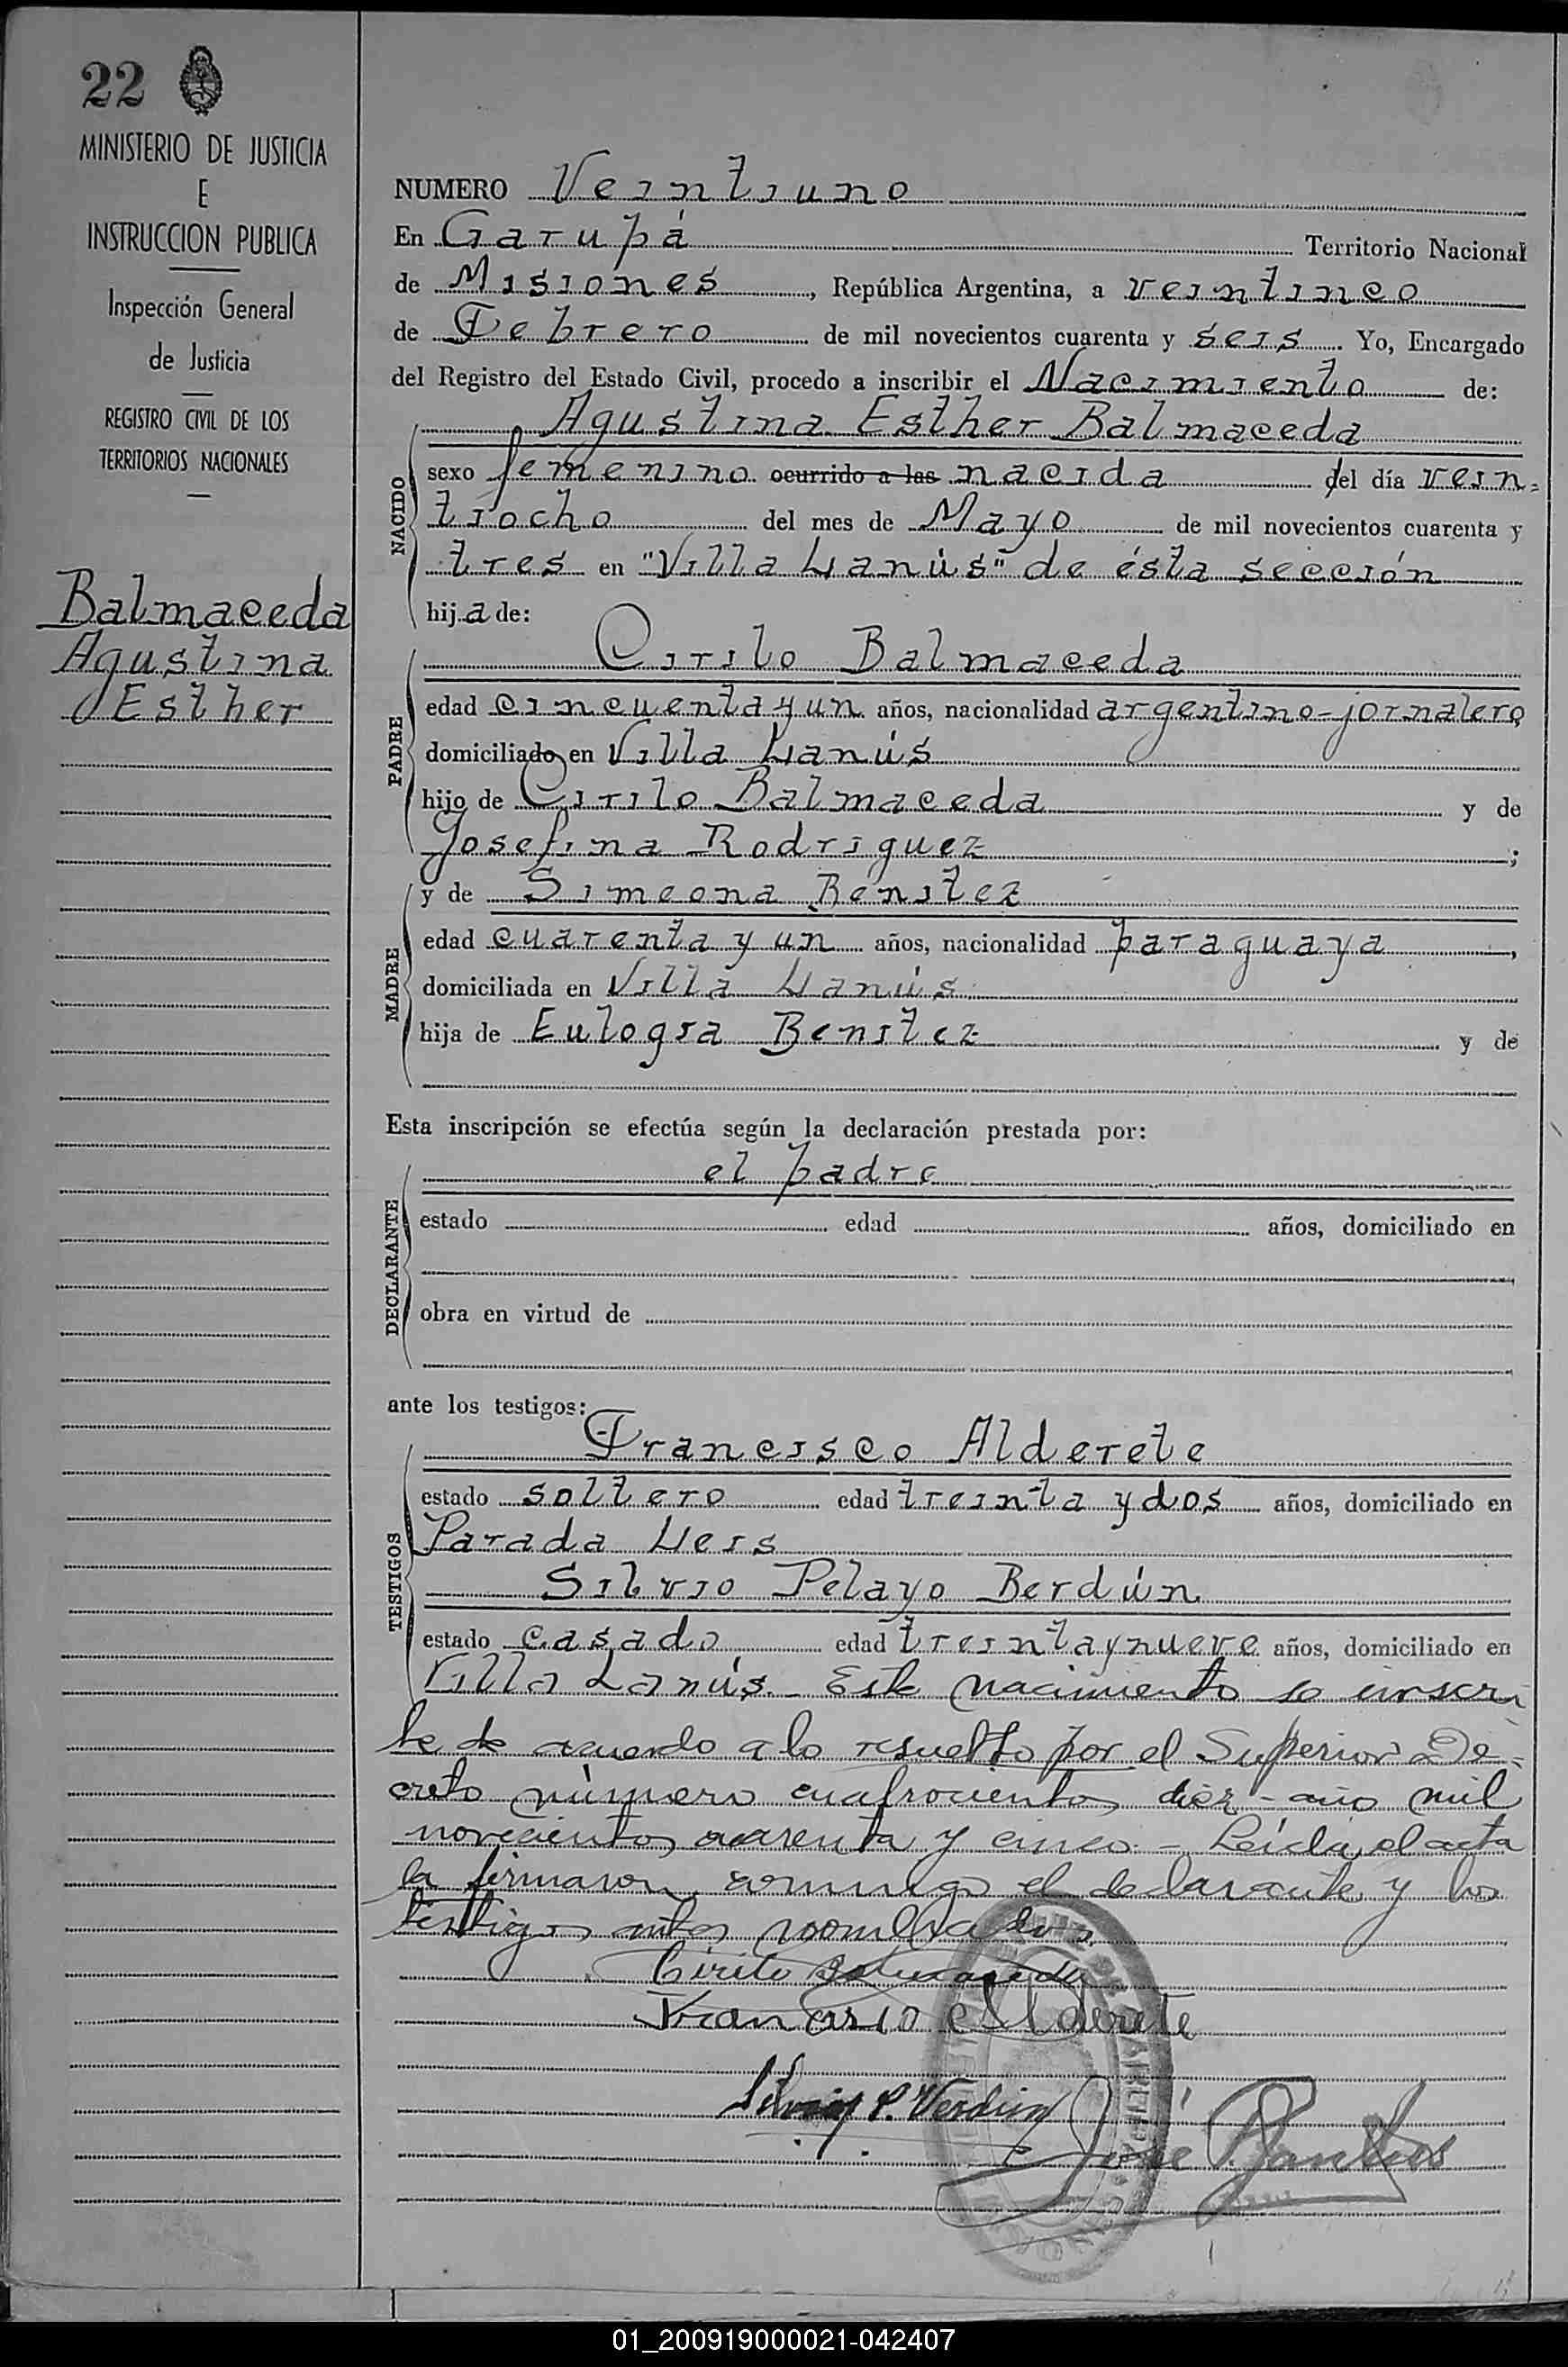 22
MINISTERIO DE JUSTICIA
E
INSTRUCCION PUBLICA
Inspección General
de Justicia
REGISTRO CIVIL DE LOS
TERRITORIOS NACIONALES
Balmaceda
Agustina
Esther
NUMERO Veintiuno
En Garupá Territorio Nacional
de Misiones, República Argentina, a veintinco
de Febrero de mil novecientos cuarenta y seis. Yo, Encargado
del Registro del Estado Civil, procedo a inscribir el Nacimiento de:
Agustina Esther Balmaceda
NACIDO
sexo femenino ocurrido a las nacida del día vein=
tiocho del mes de Mayo de mil novecientos cuarenta y
tres en "Villa Lanús" de ésta sección
hija de:
Cirilo Balmaceda
PADRE
edad cincuenta y un años, nacionalidad argentino-jornalero
domiciliado en Villa Lanús
hijo de Cirilo Balmaceda y de
Josefina Rodriguez;
y de Simeona Benitez
MADRE
edad cuarenta y un años, nacionalidad paraguaya,
domiciliada en Villa Lanús
hija de Eulogia Benitez y de
Esta inscripción se efectúa según la declaración prestada por:
el padre
DECLARANTE
estado edad años, domiciliado en
obra en virtud de
ante los testigos:
Francisco Alderete
TESTIGOS
estado soltero edad treinta y dos años, domiciliado en
Parada Leis
Silvio Pelayo Berdún
estado casado edad treinta y nueve años, domiciliado en
Villa Lanús. Este nacimiento se inscri
be de acuerdo a lo resuelto por el Superior De=
creto número cuatrocientos diez - año mil
novecientos cuarenta y cinco - Leída el acta
la firmaron conmigo el declarante y los
testigos antes nombrados.
Cirilo Balmaceda
Francisco Alderete
Silvio P. Verdun
José
01_200919000021-042407